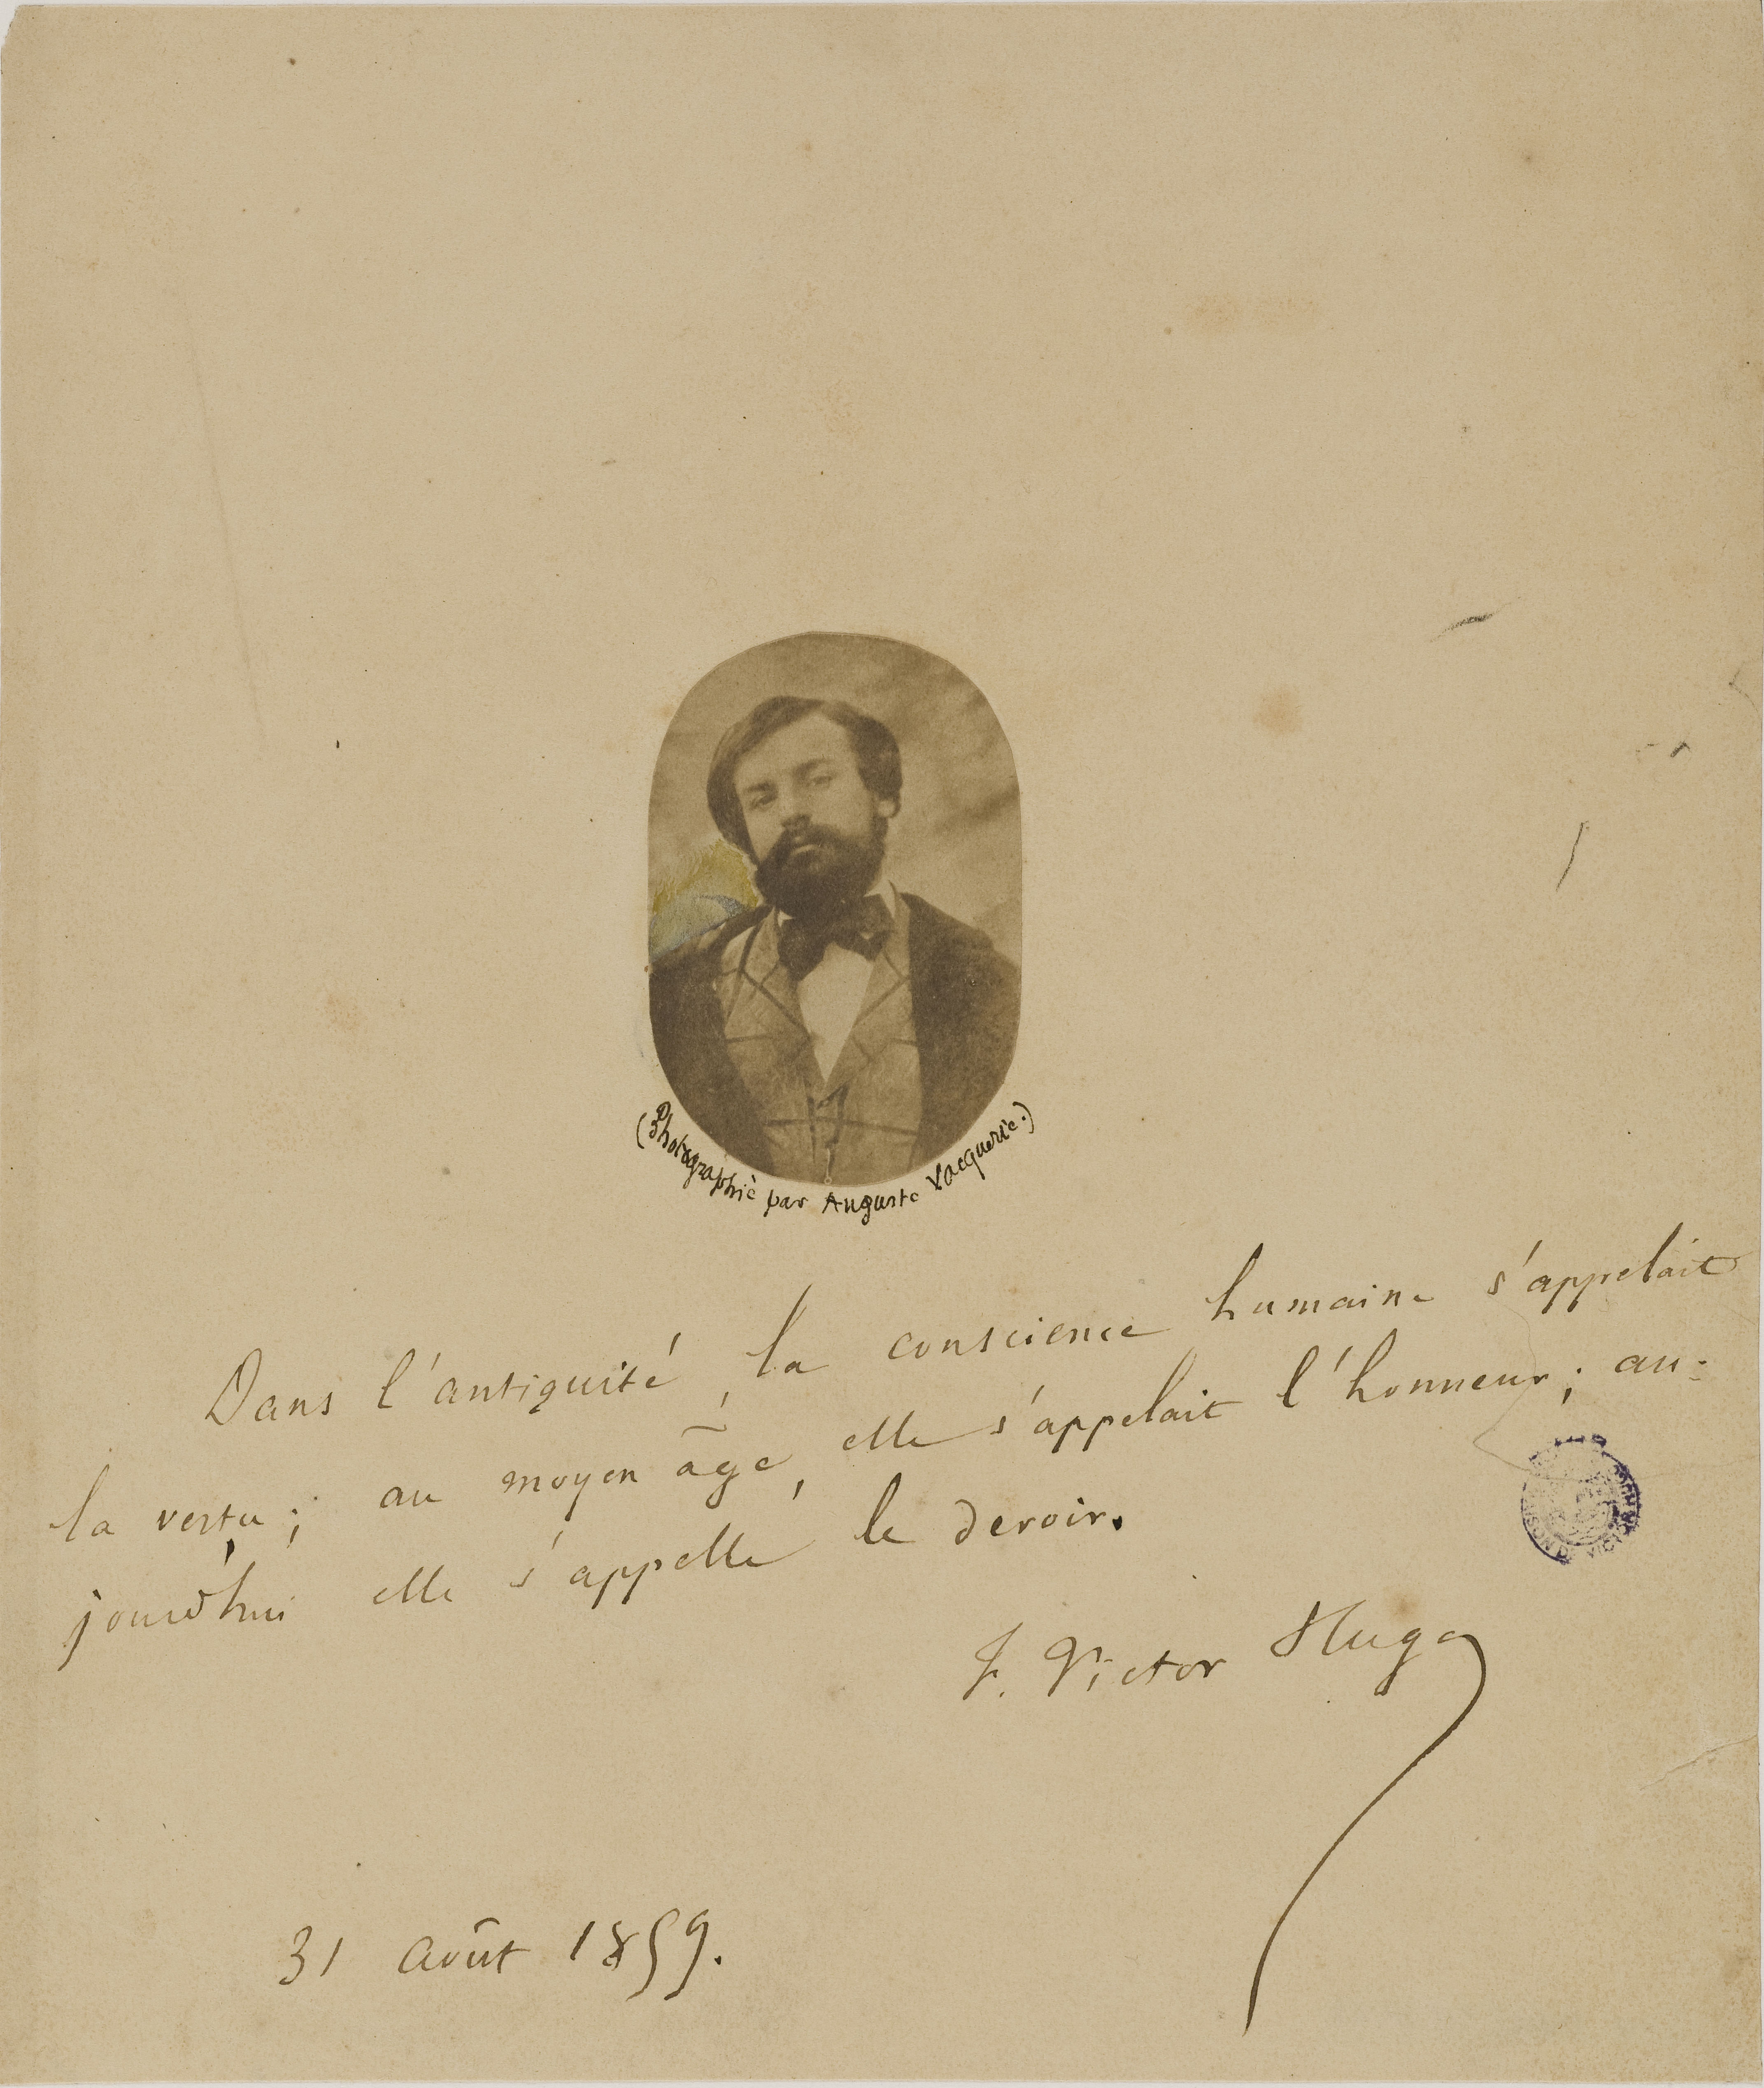 (Photographié par Auguste Vacquerie.)
Dans l'antiquité, la conscience humaine s'appelait
la vertu; au moyen âge, elle s'appelait l'honneur; au-
jourd'hui elle s'appelle le devoir.
F. Victor Hugo
31 août 1859.